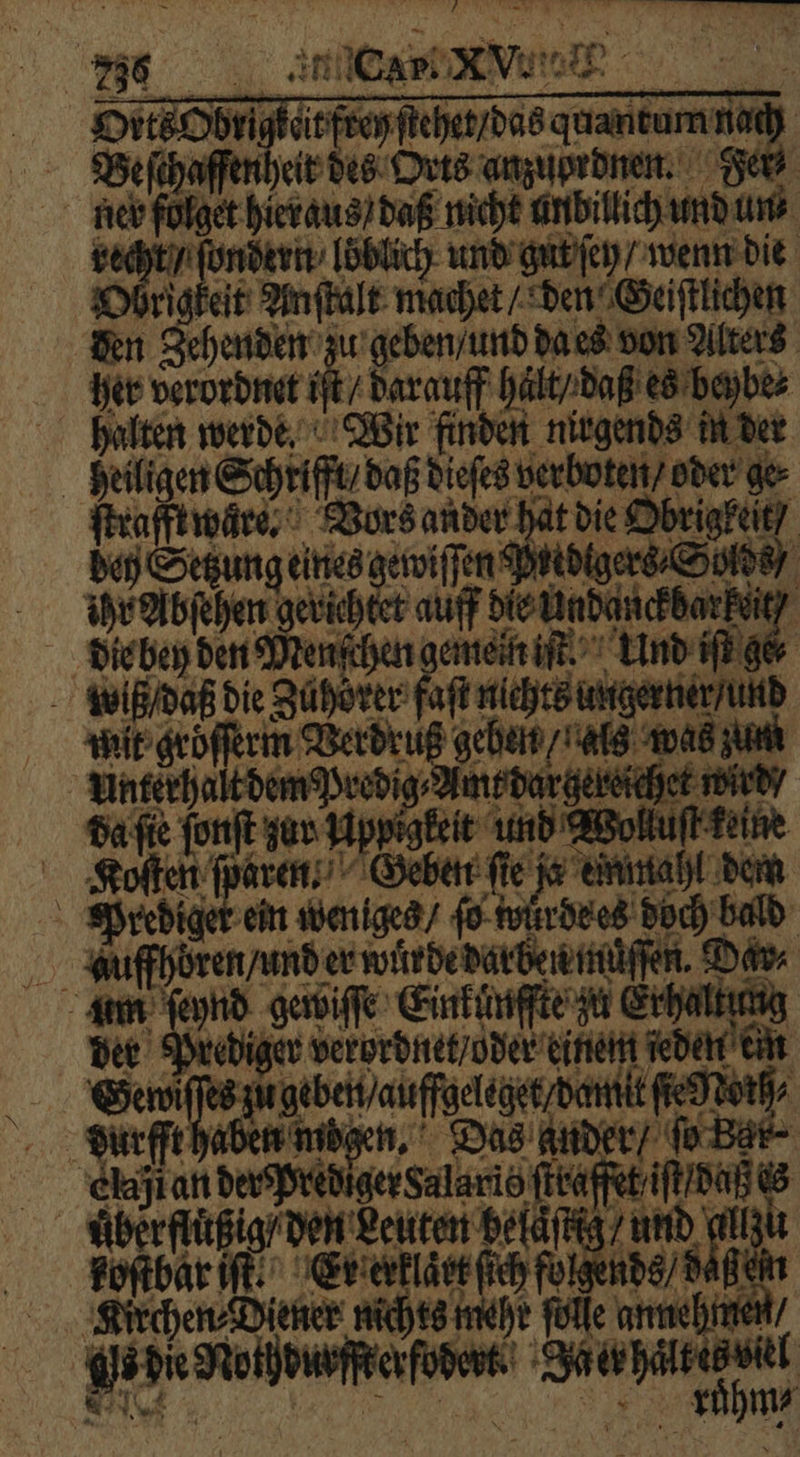 736 Cap. XV.
Orts Obrigkeit frey stehet/das quantum nach
Beschaffenheit des Orts anzuordnen. Fer⸗
ner folget hieraus/daß nicht unbillich und un⸗
recht/ sondern löblich und gut sey/ wenn die
Obrigkeit Anstalt machet/ den Geistlichen
den Zehenden zu geben/und da es von Alters
her verordnet ist/ darauff hält/daß es beybe⸗
halten werde. Wir finden nirgends in der
heiligen Schrifft/daß dieses verboten/oder ge⸗
strafft wäre. Vors ander hat die Obrigkeit/
bey Setzung eines gewissen Predigers⸗Solds/
ihr Absehen gerichtet auff die Undanckbarkeit/
die bey den Menschen gemein ist. Und ist ge⸗
wiß/daß die Zuhörer fast nichts ungerner/und
mit grösserm Verdruß geben/ als was zum
Unterhalt dem Predig⸗Amt dargereichet wird/
da sie sonst zur Uppigkeit und Wollust keine
Kosten sparen. Geben sie ja einmahl dem
Prediger ein weniges/ so würde es doch bald
auffhören/und er würde darben müssen. Dar⸗
um seynd gewisse Einkünffte zu Erhaltung
der Prediger verordnet/oder einem jeden ein
Gewisses zu geben/auffgeleget/damit sie Noth⸗
durfft haben mögen. Das ander/ so Bar-
claji an der Prediger Salario straffet/ist/daß es
überflüßig/den Leuten belästig/ und allzu
kostbar ist. Er erklärt sich folgends/ daß ein
Kirchen⸗Diener nichts mehr solle annehmen/
als die Nothdurfft erfodert. Ja er hält es viel
rühm⸗